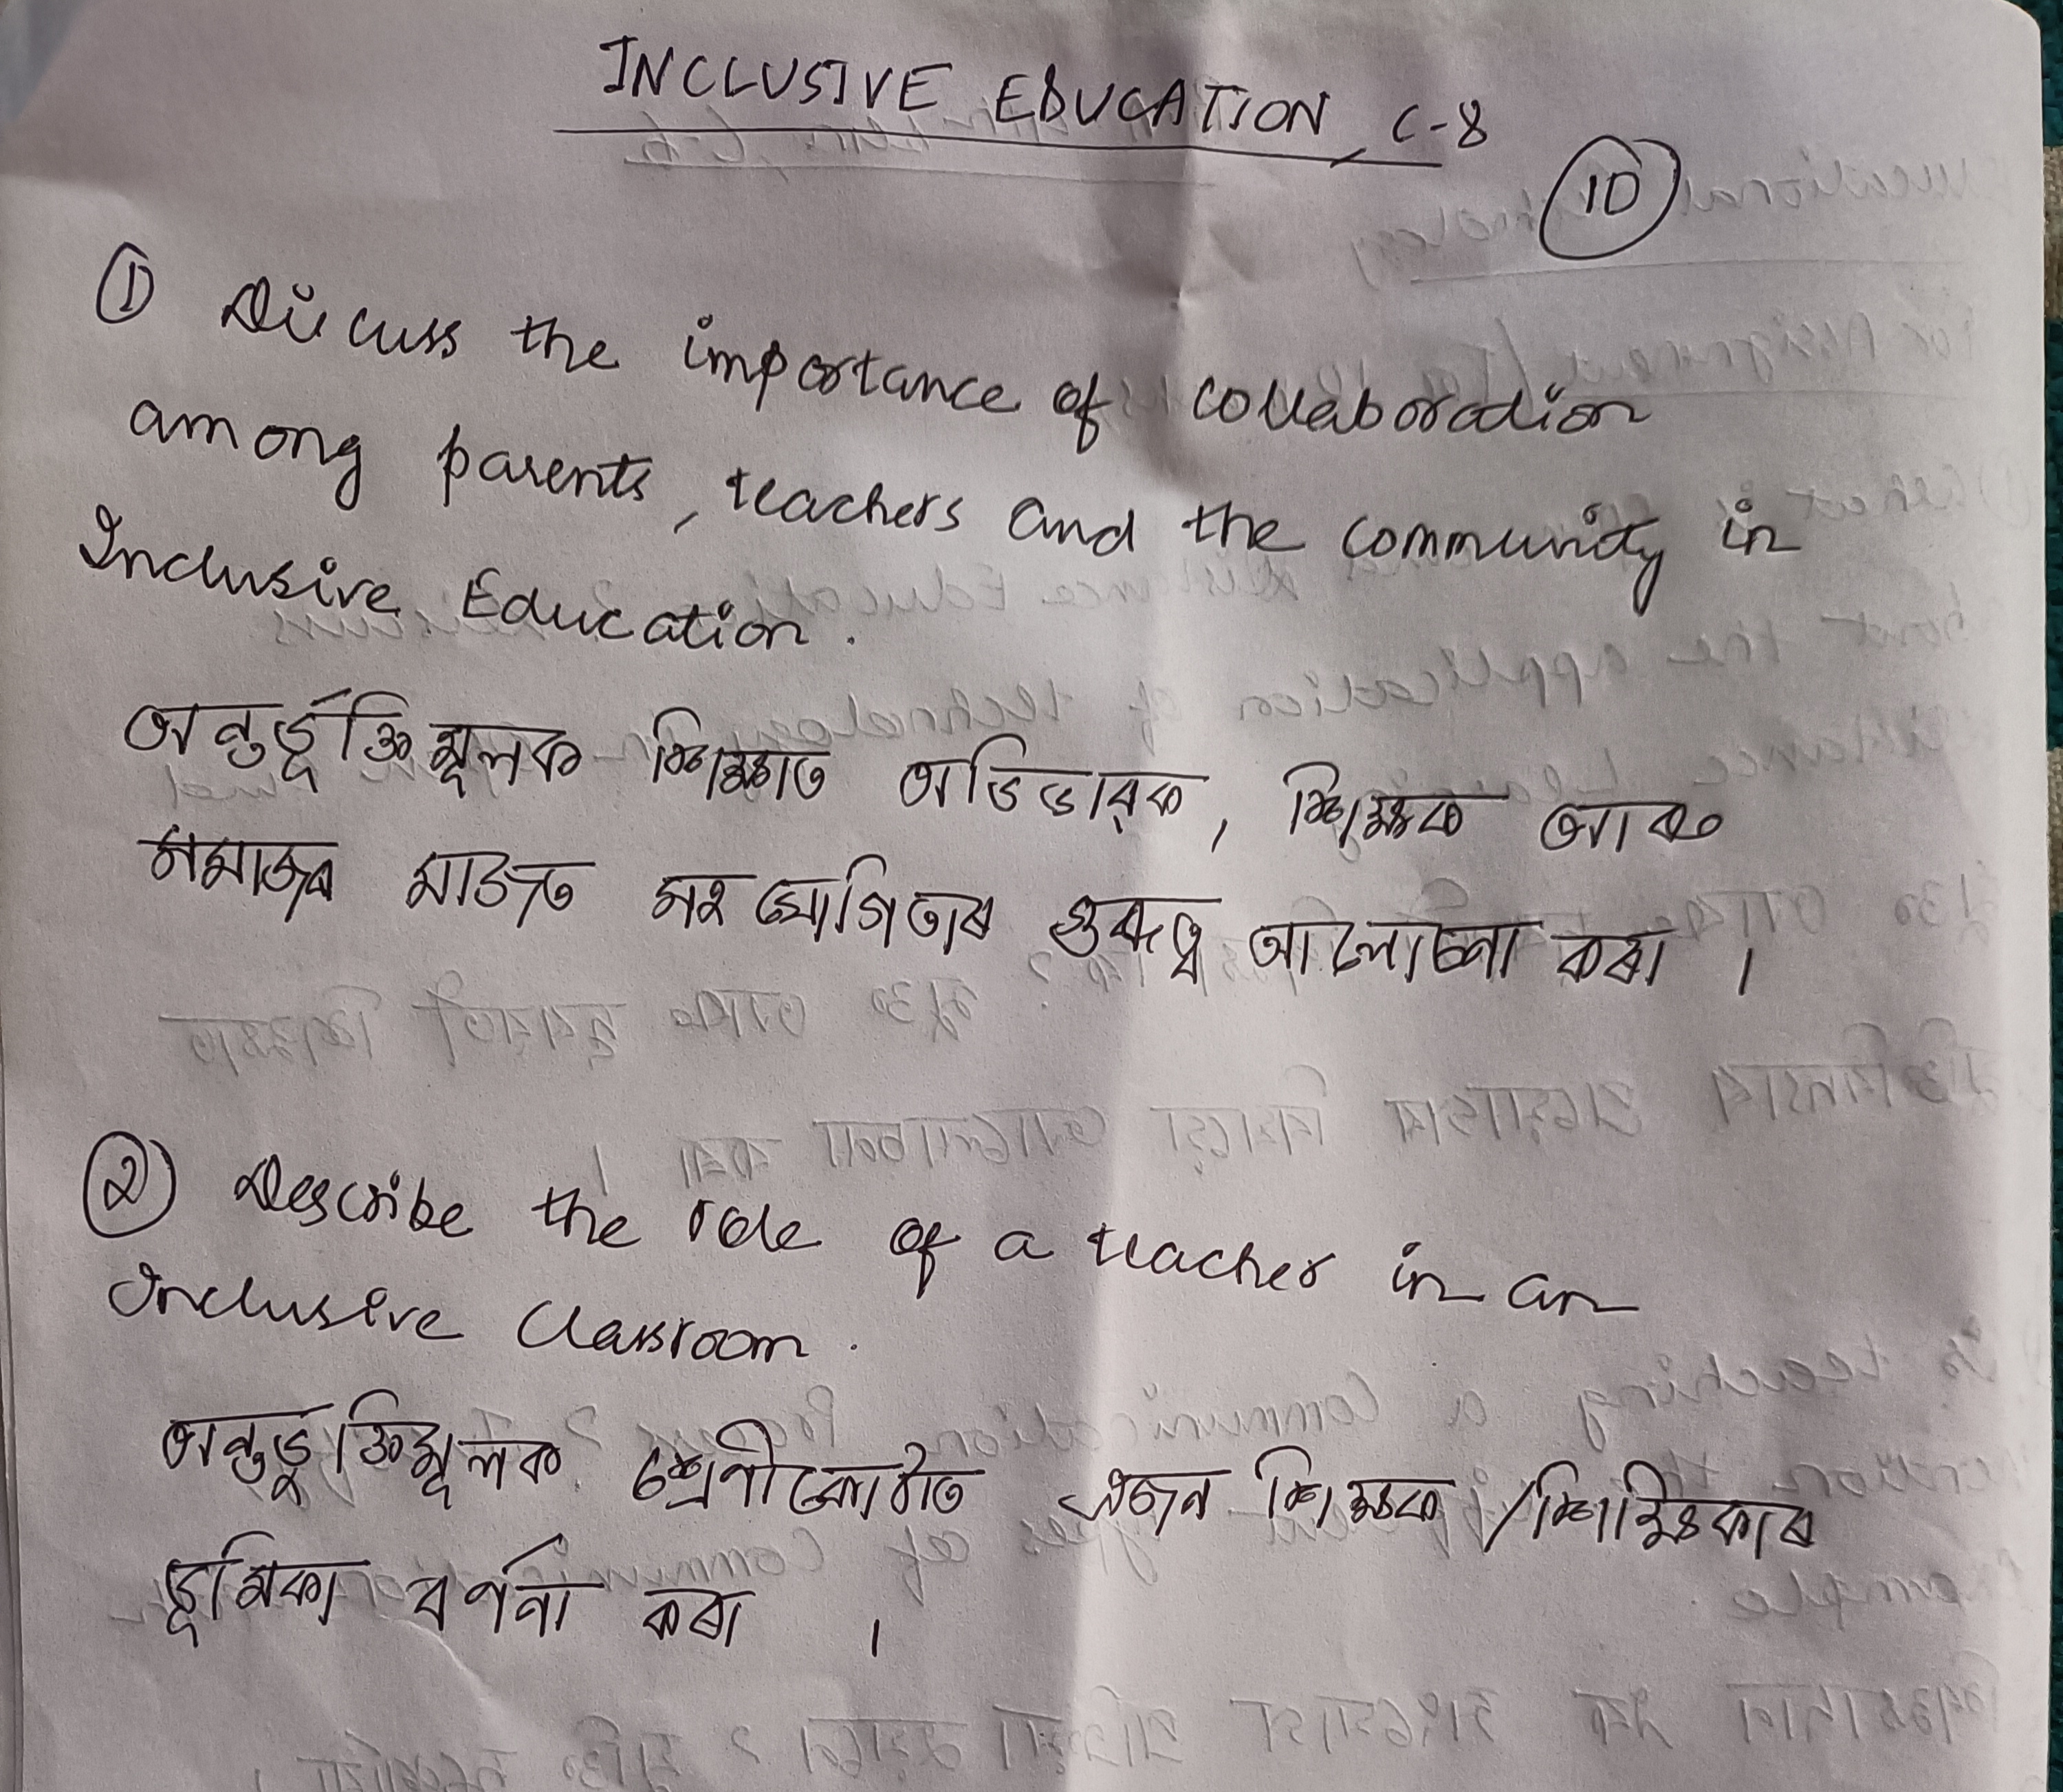 INCLUSIVE EDUCATION, C-8
10
① Discuss the importance of collaboration
among parents, teachers and the community in
Inclusive Education.
অন্তৰ্ভূক্তিমূলক শিক্ষাত অভিভাৱক, শিক্ষক আৰু
সমাজৰ মাজত সহযোগিতাৰ গুৰুত্ব আলোচনা কৰা ।
② Describe the role of a teacher in an
Inclusive Classroom.
অন্তৰ্ভুক্তিমূলক শ্ৰেণীকোঠাত এজন শিক্ষক /শিক্ষিকাৰ
ভূমিকা বৰ্ণনা কৰা ।